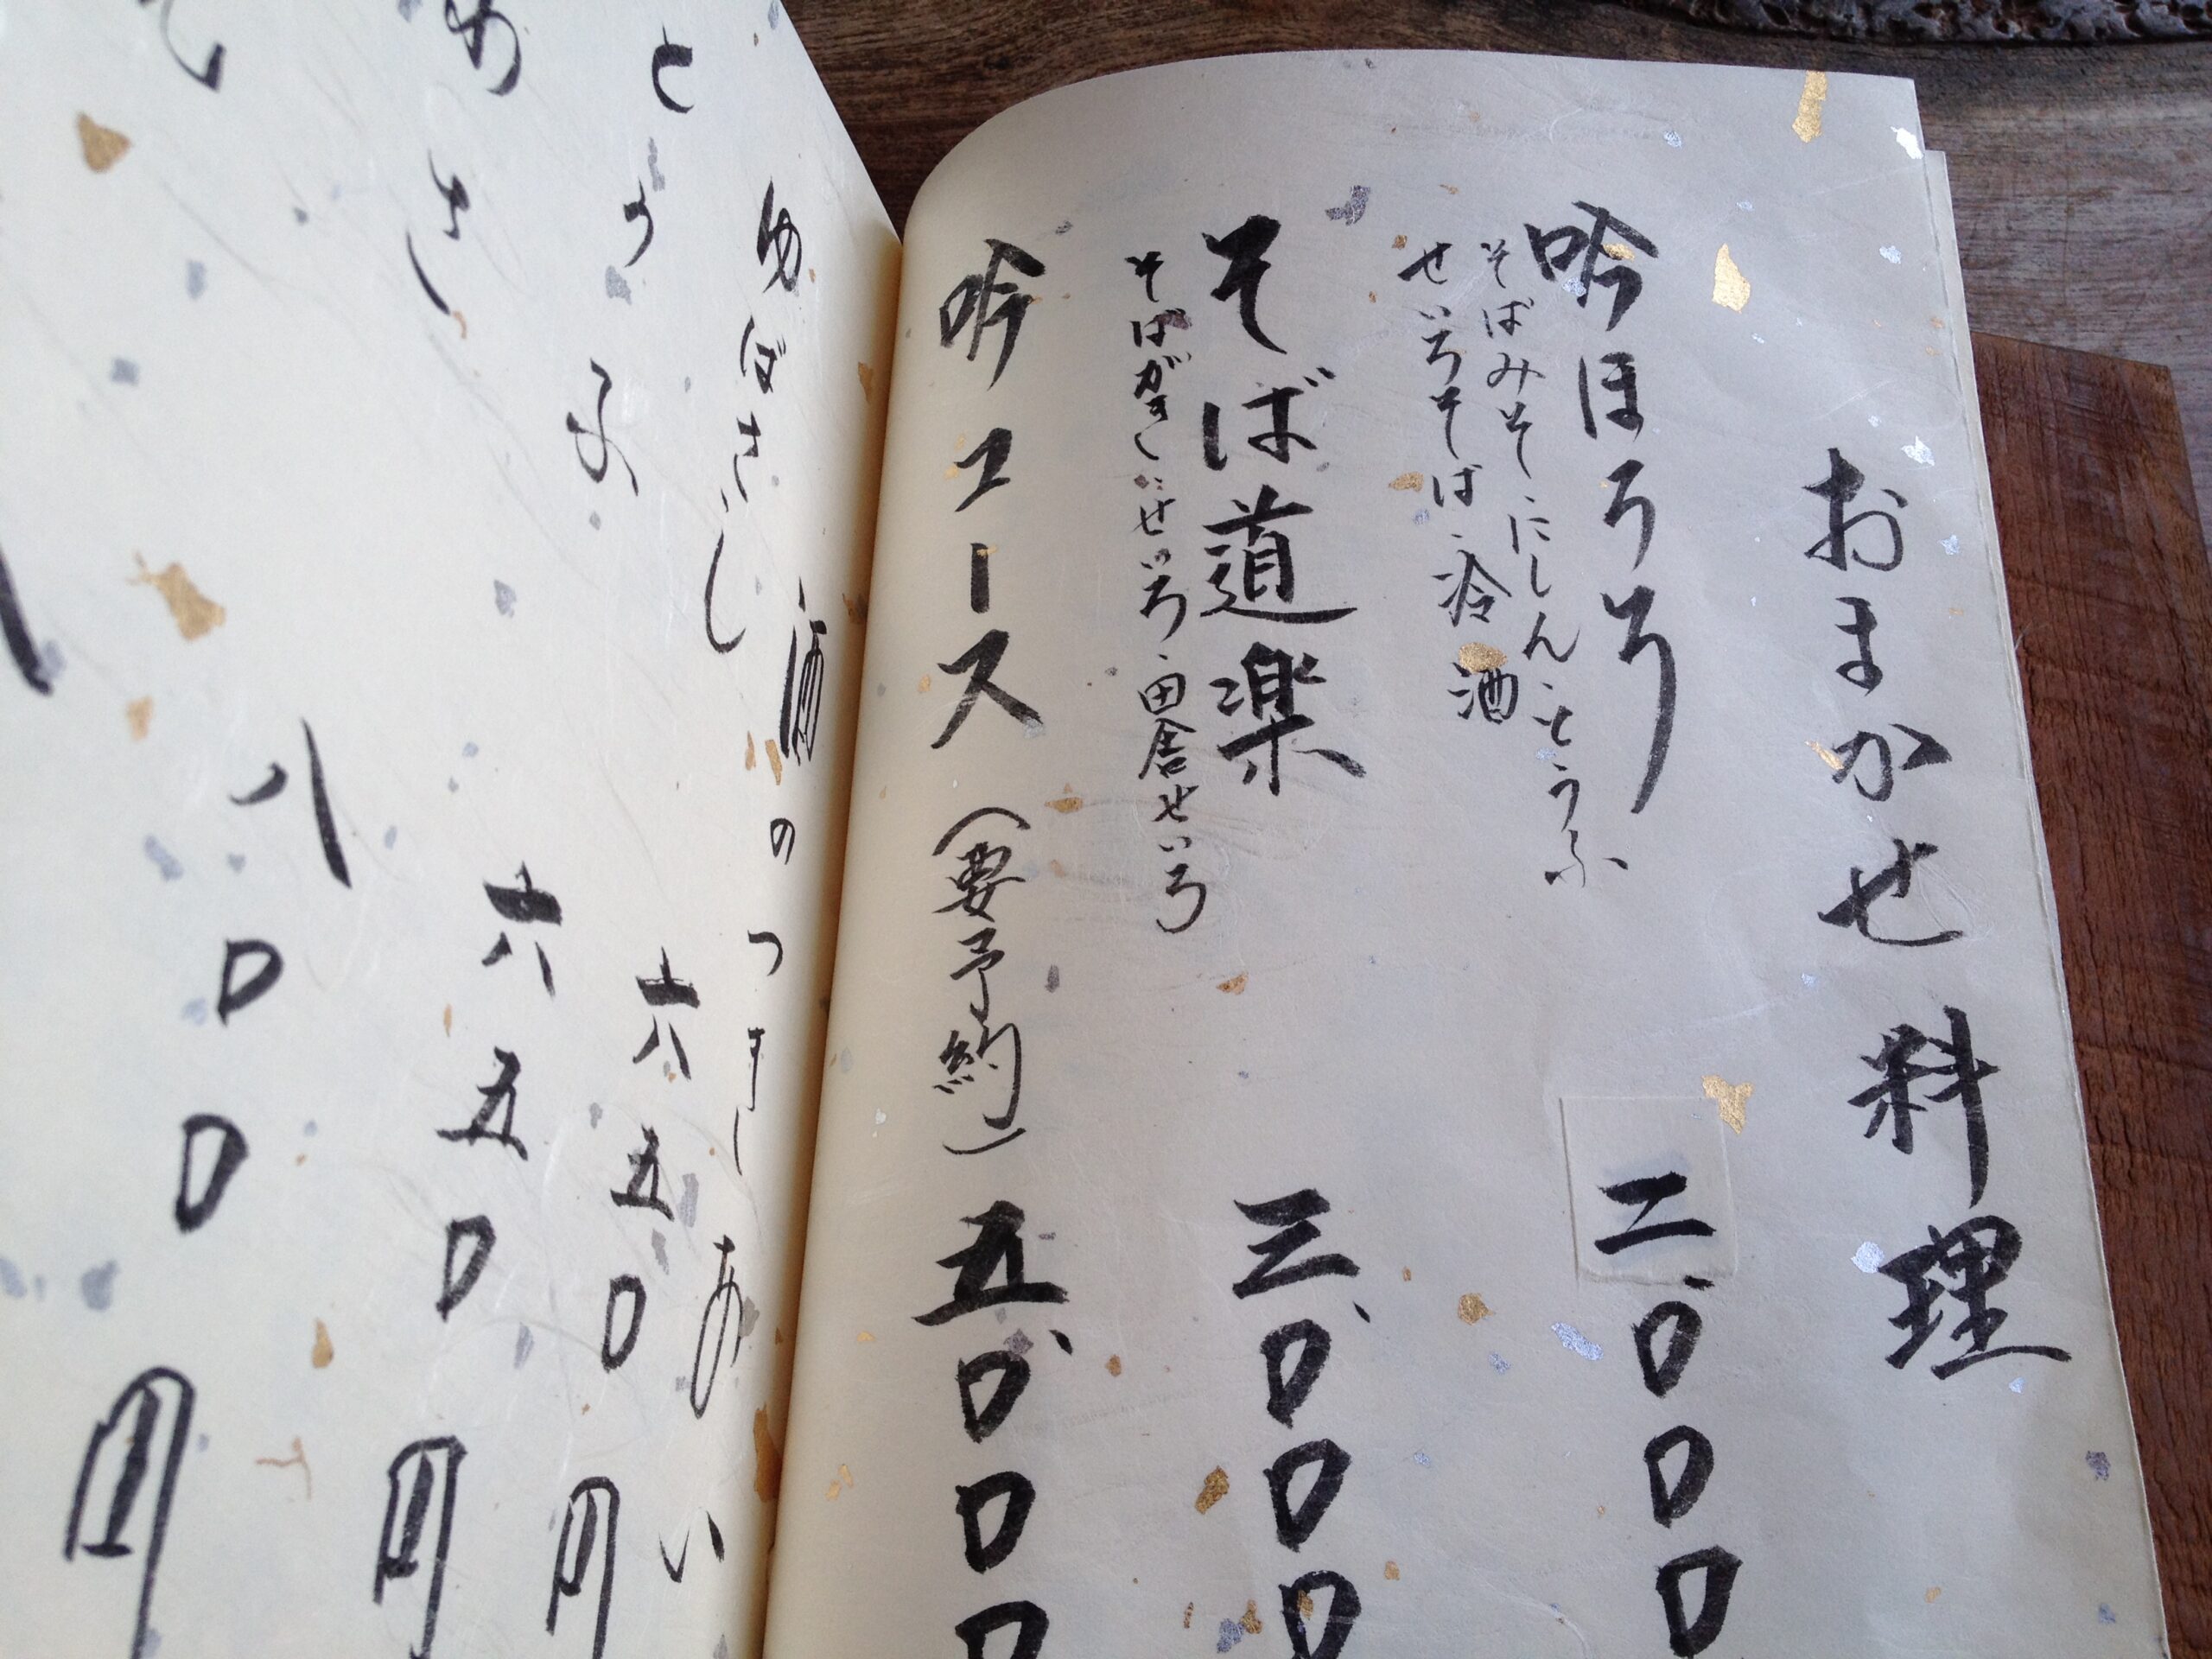 おまかせ料理
吟ほろろ 二、〇〇〇
そばみそ・にしん・とうふ
せいろそば・冷酒
そば道楽 三、〇〇〇
そばがき・にせいろ・田舎せいろ
吟コース(要予約) 五、〇〇〇
酒のつまみ
ゆばさし
とうふ 六五〇円
六五〇円
八〇〇円